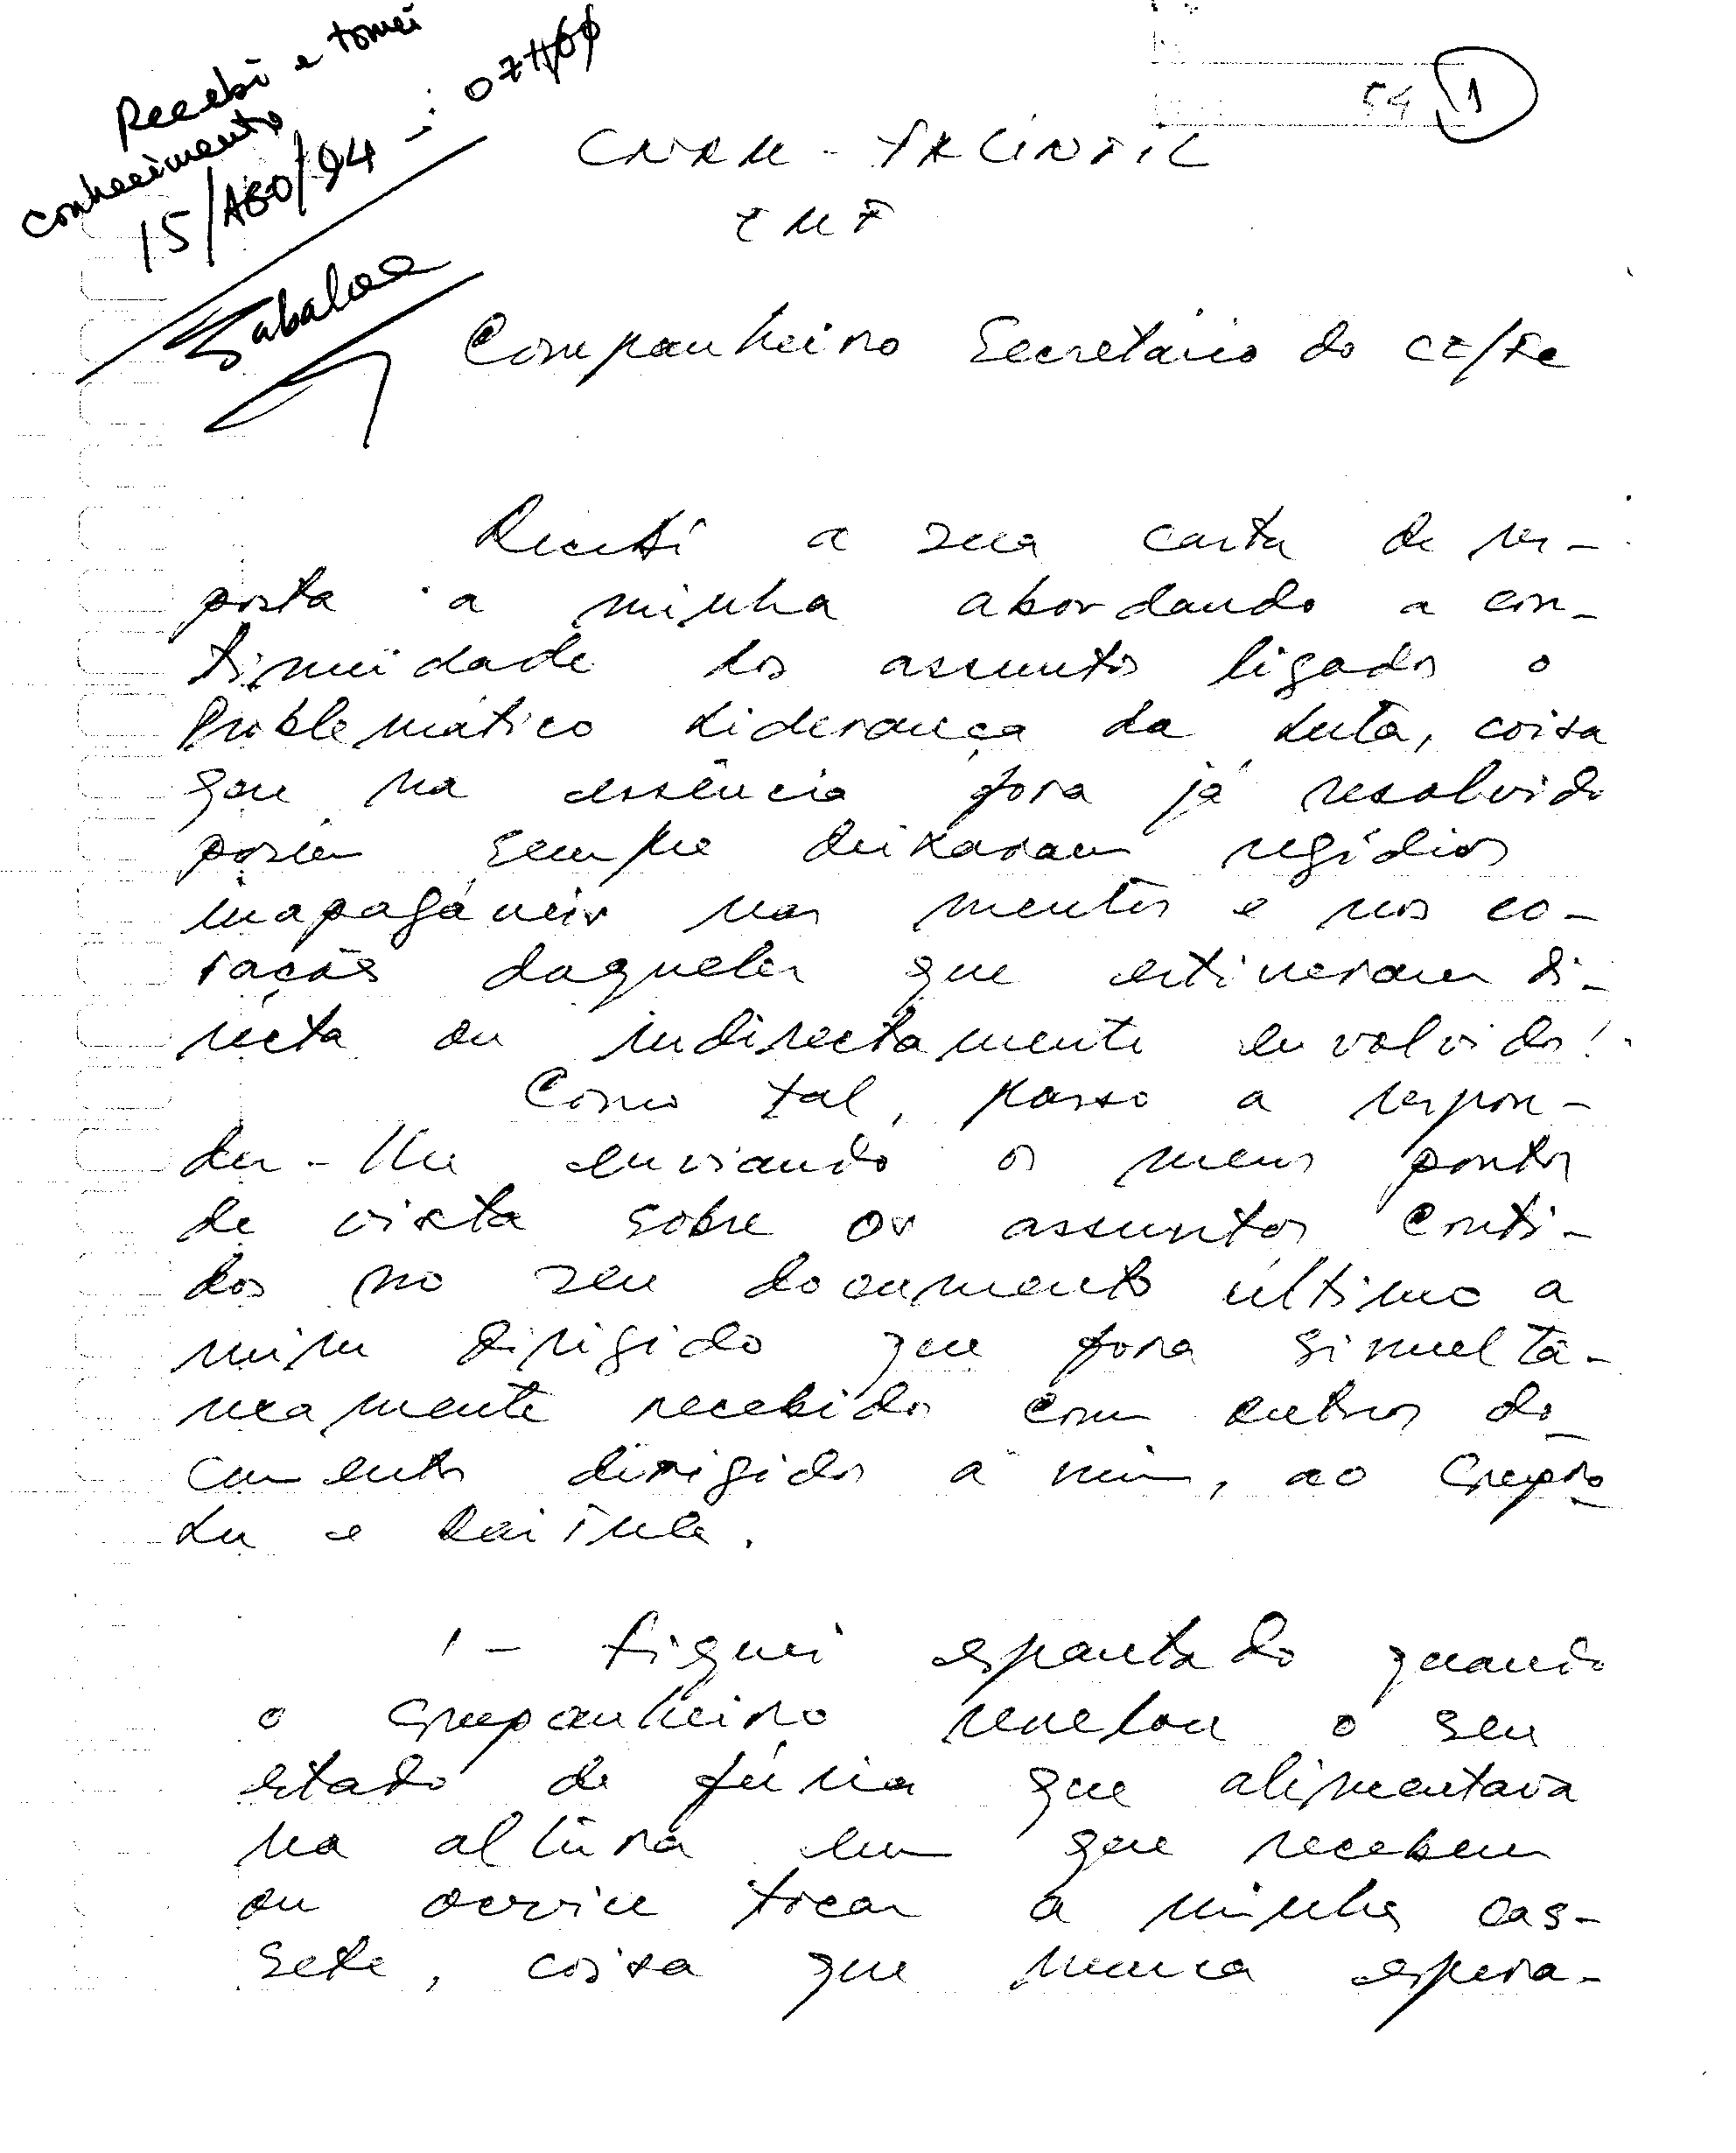 Recebi e tomei
conhecimento
15/AGO/94 -:- 07H00
Sabalae
54 1
CNRM - FALINTIL
EMF
Companheiro Secretário do CE/FC
Recebi a sua carta de res-
posta a minha abordando a con-
tinuidade dos assuntos ligados o
Problemático Liderança da Luta, coisa
que na essência fora já resolvido
porém sempre deixaram
inapagáveis nas mentes e nos co-
rações daqueles que estiveram di-
recta ou indirectamente envolvidos!
Como tal, passo a respon-
der-lhe enviando os meus pontos
de vista sobre os assuntos conti-
dos no seu documento último a
mim dirigido que fora simultâ-
neamente recebido com outros do-
cumentos dirigidos a mim, ao
Lu e
1 - Fiquei espantado quando
o Companheiro revelou o seu
estado de fúria que alimentava
na altura em que recebeu
ou ouviu tocar a minha cas-
sete, coisa que nunca espera-